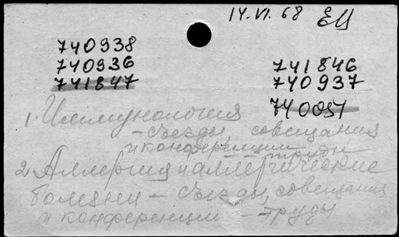 14.VI.68 ЕЦ
740938
740936
741847
741846
740937
740051
1. Иммунология
- съезды, совещания
и конференции - труды
2. Аллергия и аллергические
болезни - съезды, совещания
и конференции - труды